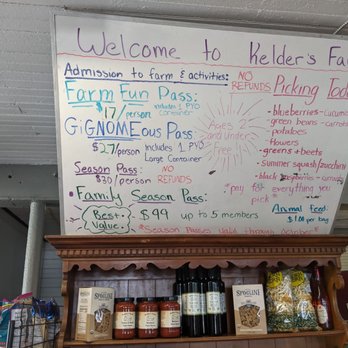 Welcome to Kelder's Fa
Admission to farm & activities:
NO
REFUNDS
Farm Fun Pass:
$17/person
includes 1 PYO
Container
GiGNOMEous Pass:
$27/person
includes 1 PYO
Large Container
Ages 2
and Under
Free
Season Pass:
$30/person
NO
REFUNDS
Family Season Pass:
Best
Value
$99 up to 5 members
*Season Passes valid through October*
Picking Toda
- blueberries
- green beans
- potatoes
- flowers
- greens + beets
- Summer squash/zucchini
- black
*pay for everything you
pick*
Animal Feed
$1.00 per bag